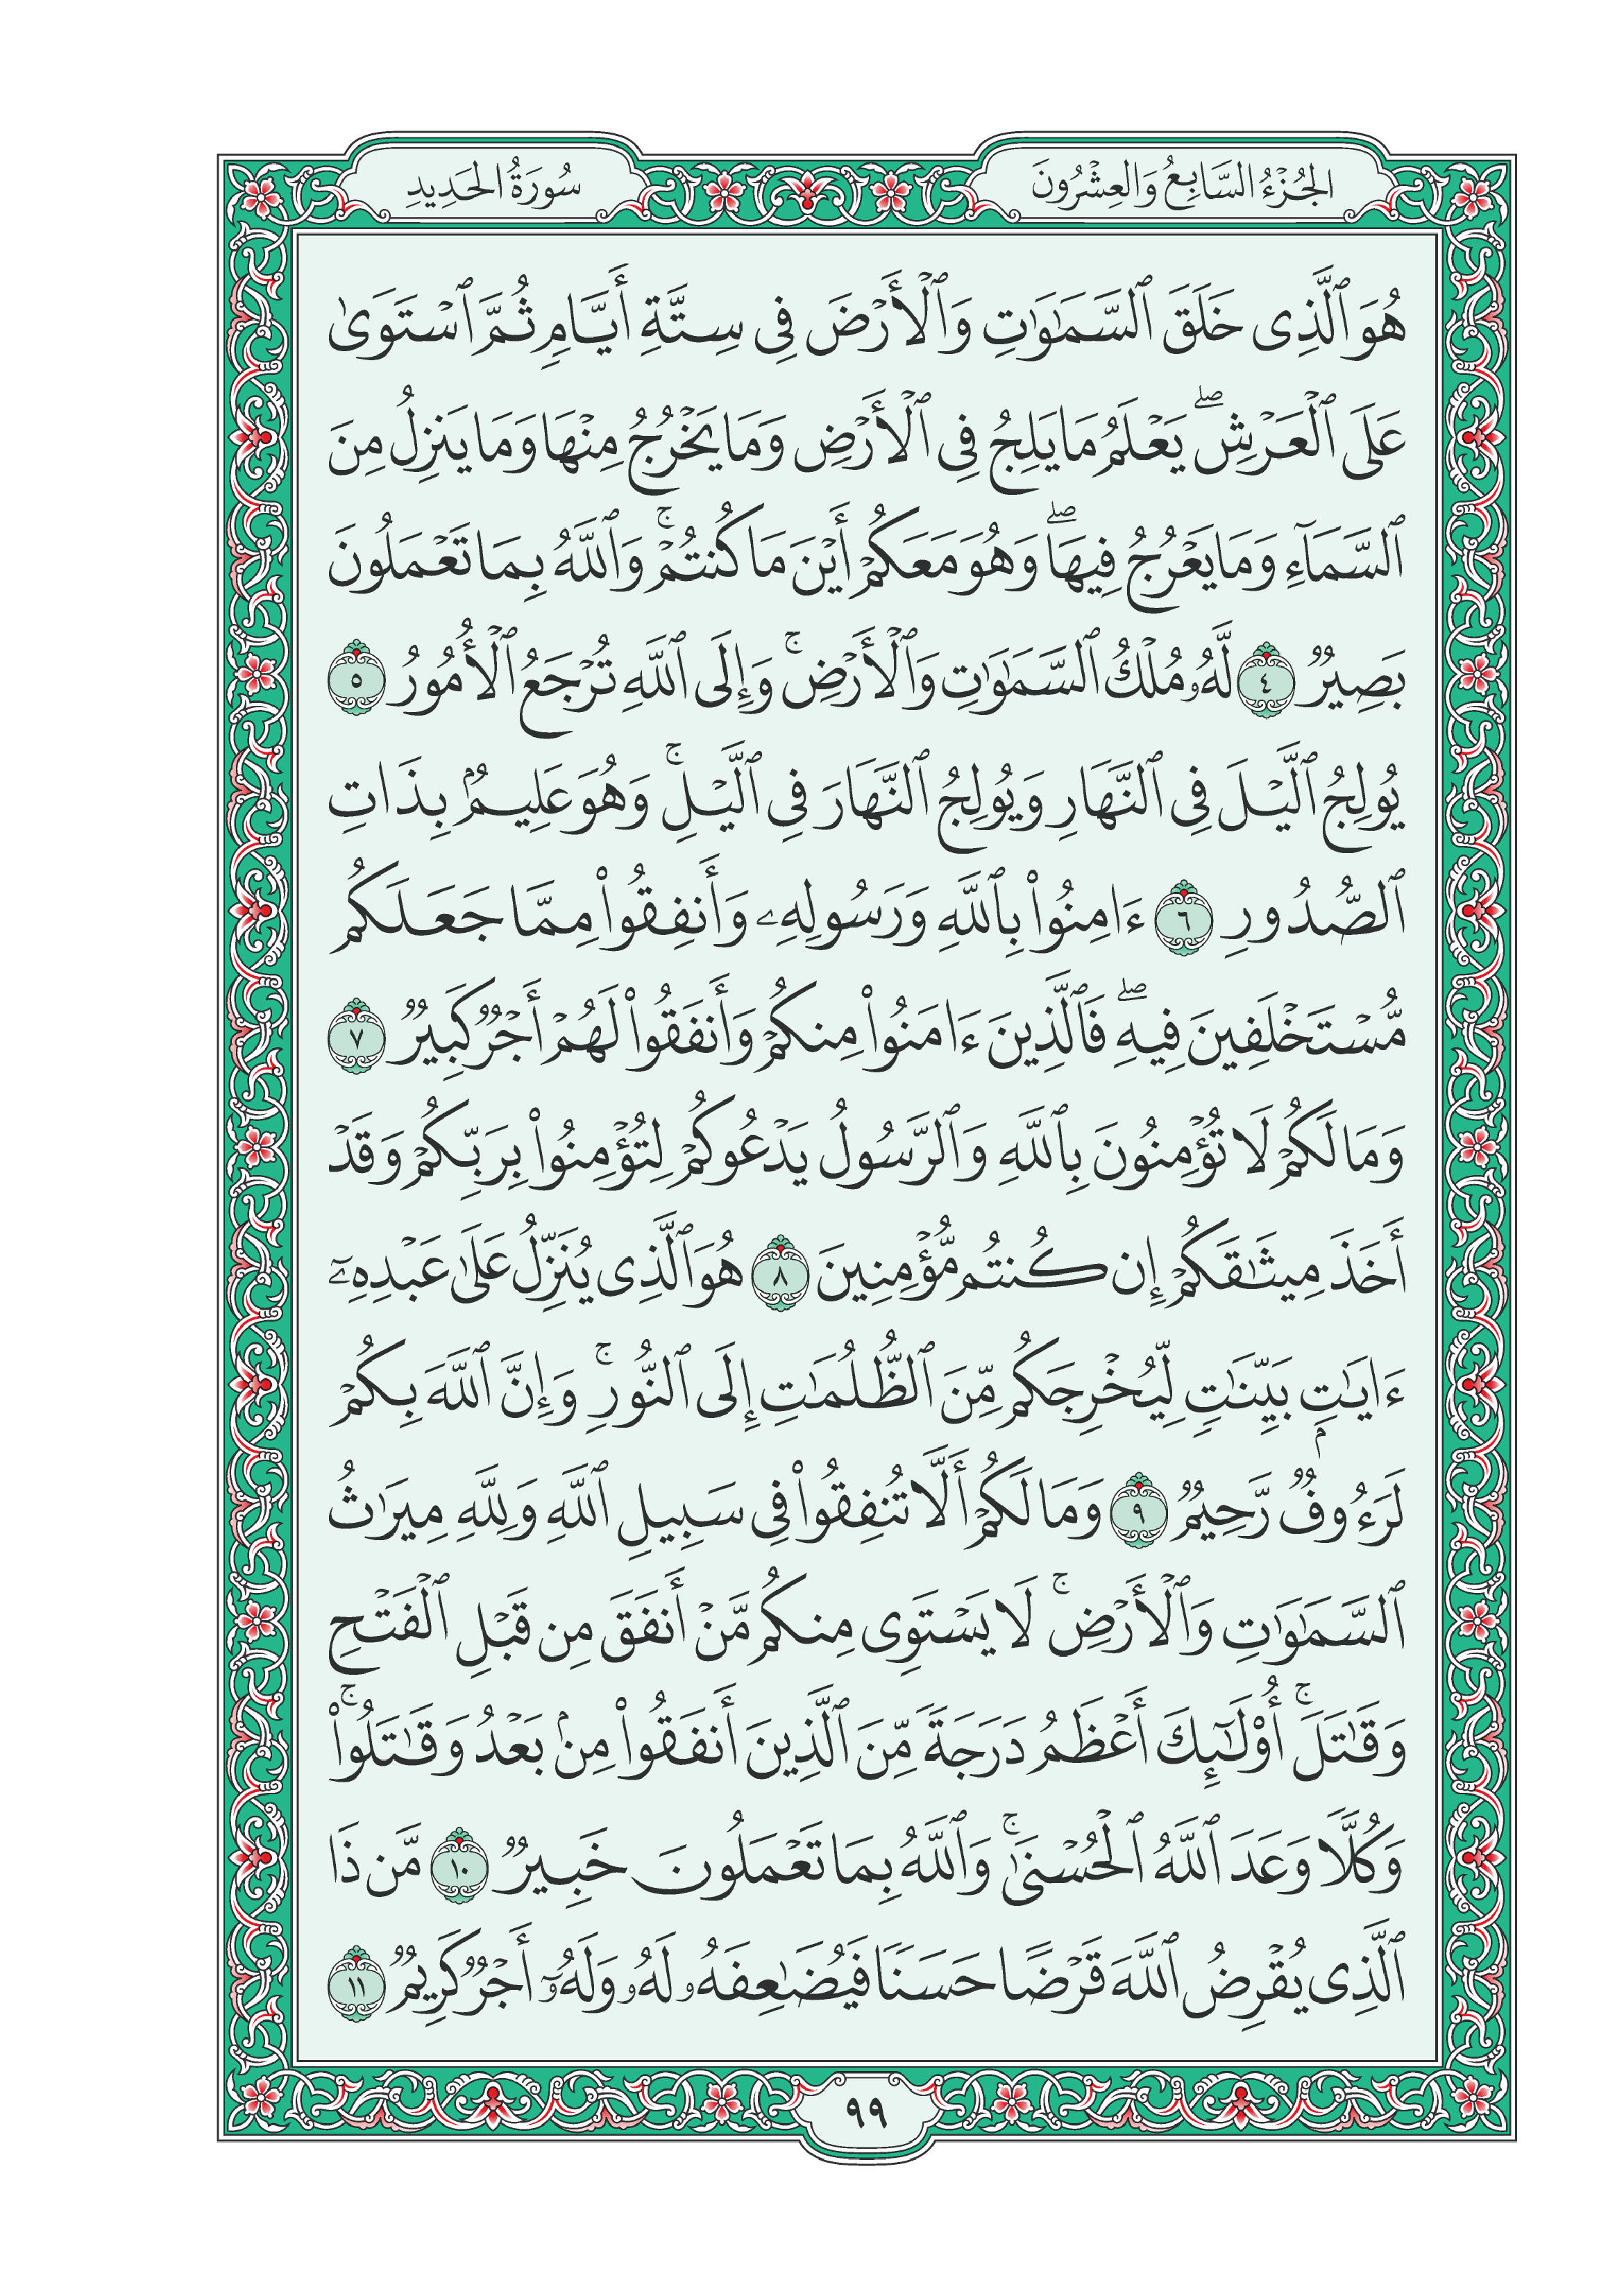 الجُزْءُ السَّابِعُ وَالعِشْرُونَ
سُورَةُ الحَدِيدِ
هُوَ ٱلَّذِى خَلَقَ ٱلسَّمَٰوَٰتِ وَٱلْأَرْضَ فِى سِتَّةِ أَيَّامٍ ثُمَّ ٱسْتَوَىٰ
عَلَى ٱلْعَرْشِ ۖ يَعْلَمُ مَا يَلِجُ فِى ٱلْأَرْضِ وَمَا يَخْرُجُ مِنْهَا وَمَا يَنزِلُ مِنَ
ٱلسَّمَآءِ وَمَا يَعْرُجُ فِيهَا ۖ وَهُوَ مَعَكُمْ أَيْنَ مَا كُنتُمْ ۚ وَٱللَّهُ بِمَا تَعْمَلُونَ
بَصِيرٌ ٤ لَّهُۥ مُلْكُ ٱلسَّمَٰوَٰتِ وَٱلْأَرْضِ ۚ وَإِلَى ٱللَّهِ تُرْجَعُ ٱلْأُمُورُ ٥
يُولِجُ ٱلَّيْلَ فِى ٱلنَّهَارِ وَيُولِجُ ٱلنَّهَارَ فِى ٱلَّيْلِ ۚ وَهُوَ عَلِيمٌۢ بِذَاتِ
ٱلصُّدُورِ ٦ ءَامِنُوا۟ بِٱللَّهِ وَرَسُولِهِۦ وَأَنفِقُوا۟ مِمَّا جَعَلَكُم
مُّسْتَخْلَفِينَ فِيهِ ۖ فَٱلَّذِينَ ءَامَنُوا۟ مِنكُمْ وَأَنفَقُوا۟ لَهُمْ أَجْرٌ كَبِيرٌ ٧
وَمَا لَكُمْ لَا تُؤْمِنُونَ بِٱللَّهِ وَٱلرَّسُولُ يَدْعُوكُمْ لِتُؤْمِنُوا۟ بِرَبِّكُمْ وَقَدْ
أَخَذَ مِيثَٰقَكُمْ إِن كُنتُم مُّؤْمِنِينَ ٨ هُوَ ٱلَّذِى يُنَزِّلُ عَلَىٰ عَبْدِهِۦٓ
ءَايَٰتٍۭ بَيِّنَٰتٍ لِّيُخْرِجَكُم مِّنَ ٱلظُّلُمَٰتِ إِلَى ٱلنُّورِ ۚ وَإِنَّ ٱللَّهَ بِكُمْ
لَرَءُوفٌ رَّحِيمٌ ٩ وَمَا لَكُمْ أَلَّا تُنفِقُوا۟ فِى سَبِيلِ ٱللَّهِ وَلِلَّهِ مِيرَٰثُ
ٱلسَّمَٰوَٰتِ وَٱلْأَرْضِ ۚ لَا يَسْتَوِى مِنكُم مَّنْ أَنفَقَ مِن قَبْلِ ٱلْفَتْحِ
وَقَٰتَلَ ۚ أُو۟لَٰٓئِكَ أَعْظَمُ دَرَجَةً مِّنَ ٱلَّذِينَ أَنفَقُوا۟ مِنۢ بَعْدُ وَقَٰتَلُوا۟ ۚ
وَكُلًّا وَعَدَ ٱللَّهُ ٱلْحُسْنَىٰ ۚ وَٱللَّهُ بِمَا تَعْمَلُونَ خَبِيرٌ ١٠ مَّن ذَا
ٱلَّذِى يُقْرِضُ ٱللَّهَ قَرْضًا حَسَنًا فَيُضَٰعِفَهُۥ لَهُۥ وَلَهُۥٓ أَجْرٌ كَرِيمٌ ١١
٩٩